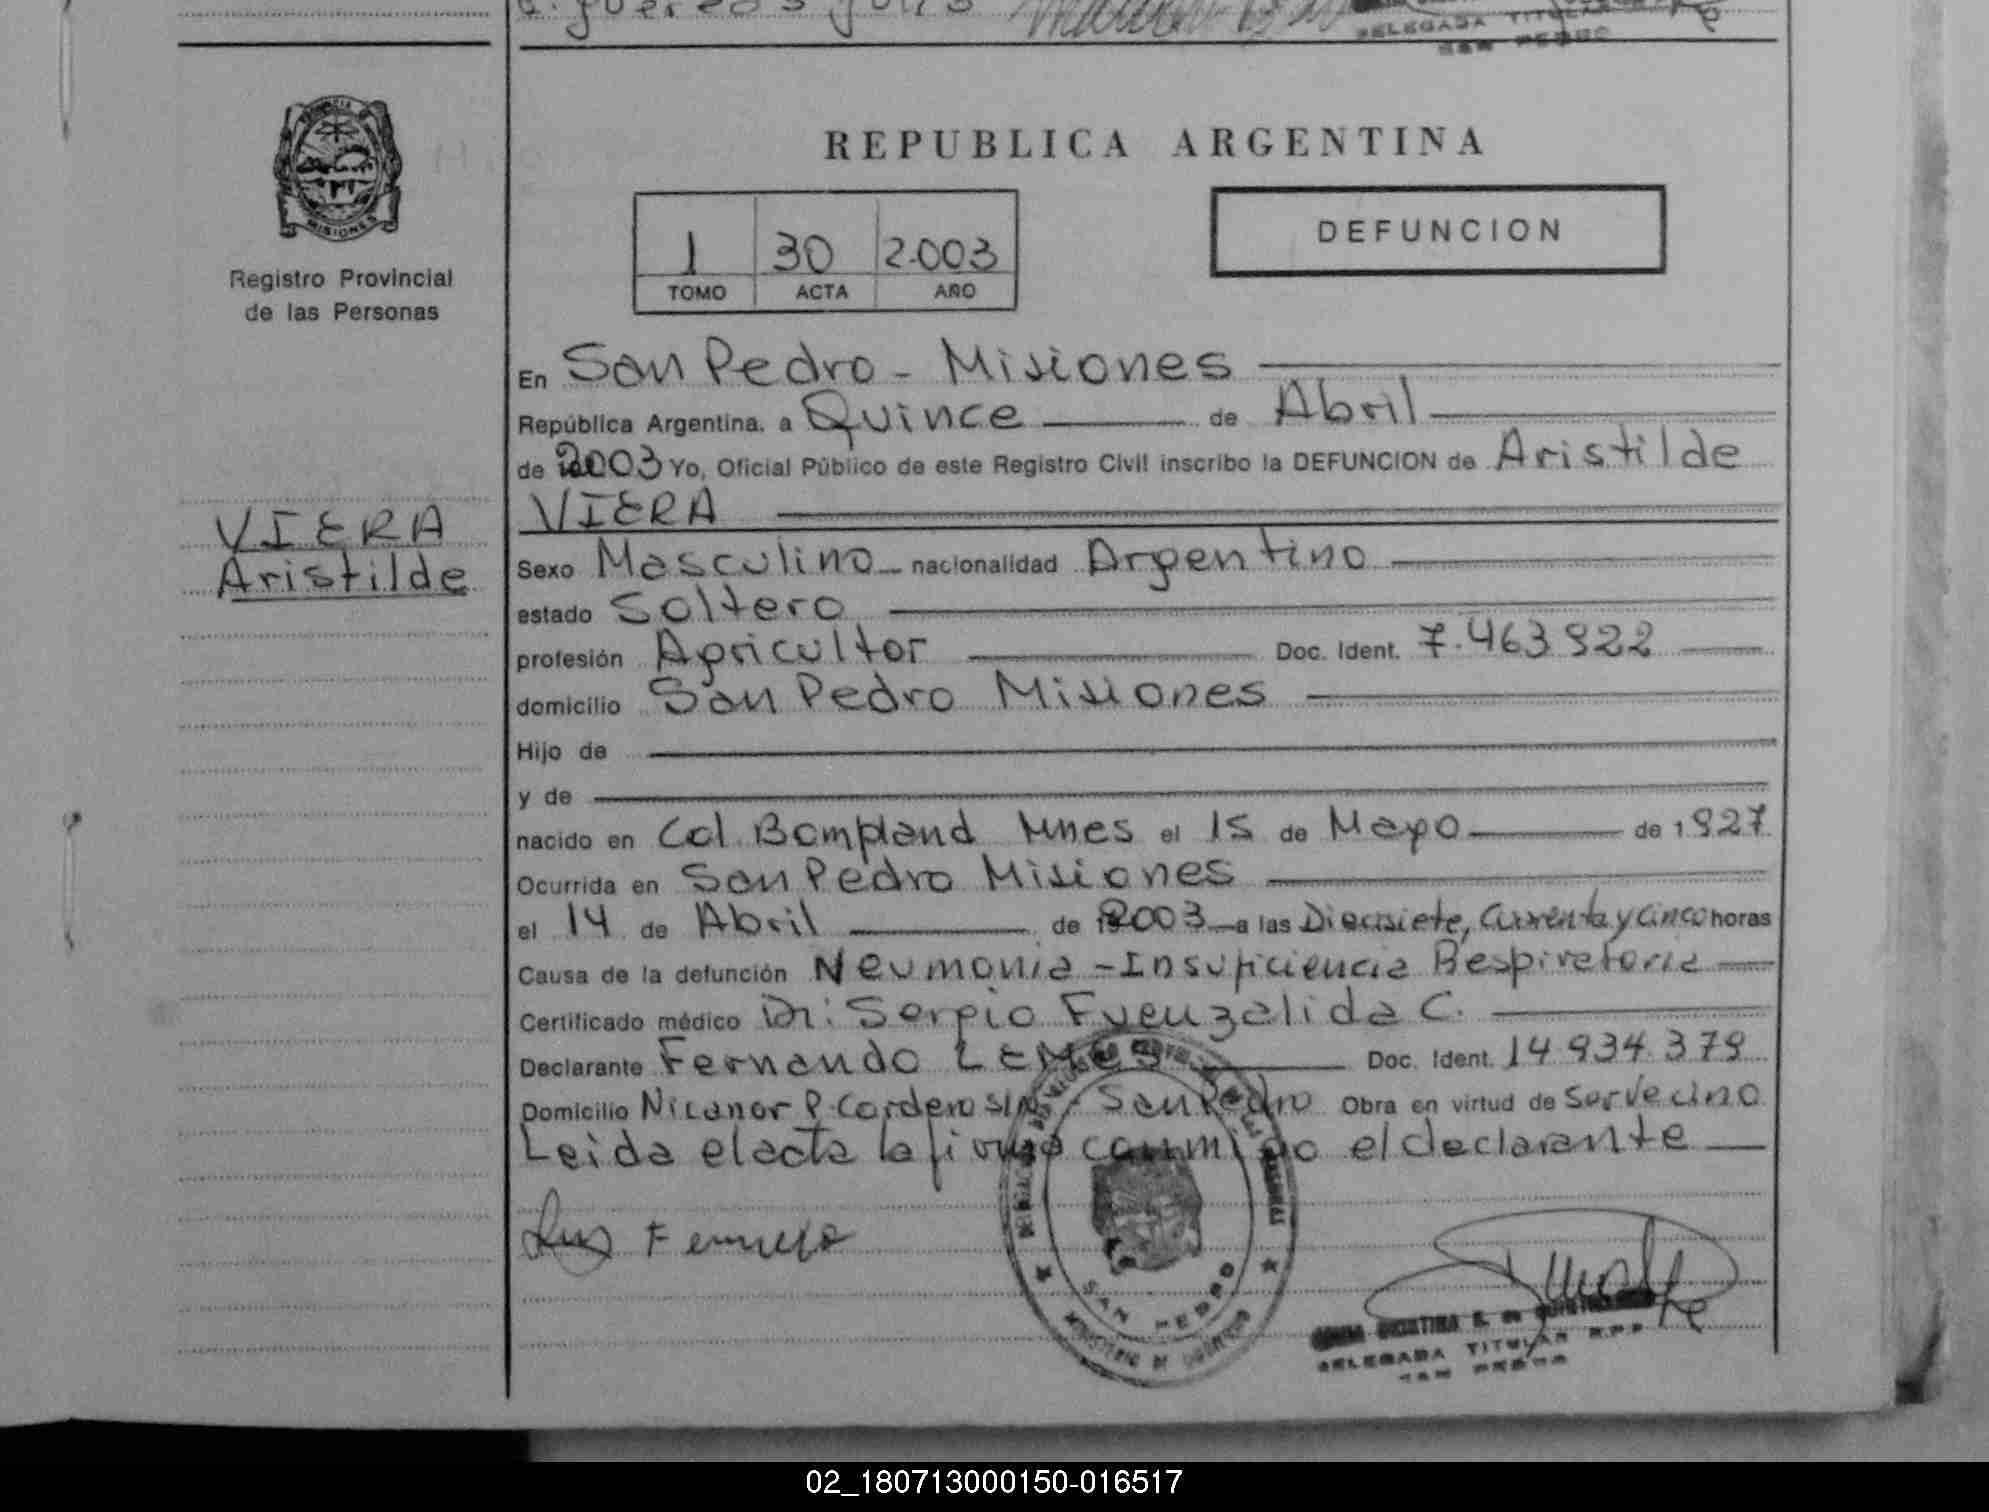 REPUBLICA ARGENTINA
PROVINCIA DE
MISIONES
Registro Provincial
de las Personas
1 30 2.003
TOMO ACTA AÑO
DEFUNCION
VIERA
Aristilde
En San Pedro - Misiones
República Argentina, a Quince de Abril
de 2003 Yo, Oficial Público de este Registro Civil inscribo la DEFUNCION de Aristilde
VIERA
Sexo Masculino nacionalidad Argentino
estado Soltero
profesión Agricultor Doc. Ident. 7.463 922
domicilio San Pedro Misiones
Hijo de
y de
nacido en Col. Bompland Mnes el 15 de Mayo de 1927
Ocurrida en San Pedro Misiones
el 14 de Abril de 2003 a las Diecisiete, Cuarenta y Cinco horas
Causa de la defunción Neumonia - Insuficiencia Respiratoria
Certificado médico Dr: Sergio Fuenzalida C.
Declarante Fernando LEMES Doc. Ident. 14 934 379
Domicilio Nicanor P. Cordero S/N - San Pedro Obra en virtud de Ser Vecino
Leida el acta la firma conmigo el declarante
SAN PEDRO
MINISTERIO DE GOBIERNO
DELEGADA TITULAR R.P.P.
SAN PEDRO
02_180713000150-016517